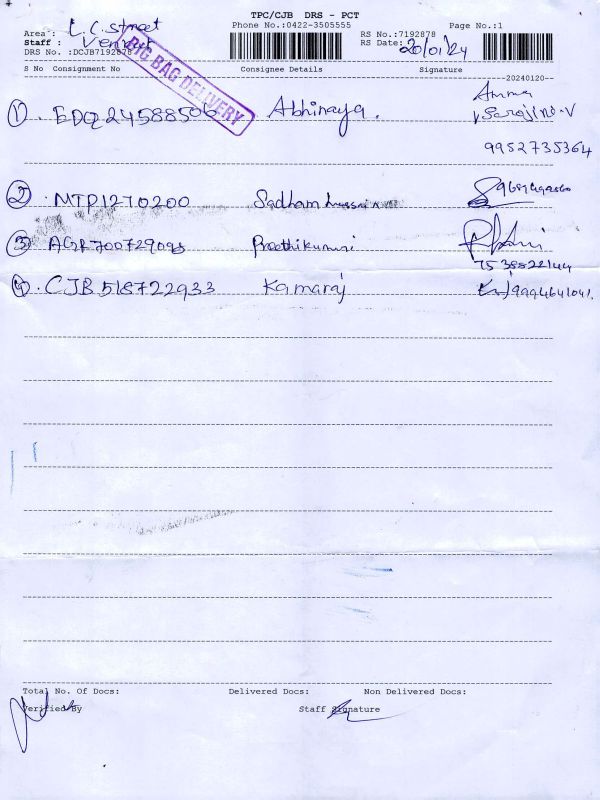 TPC/CJB DRS - PCT
Area : L.C. Street
Phone No.:0422-3505555
RS No.:7192878
Page No.:1
Staff :
RS Date: 20/01/24
DRS No. :DCJB7192878
BIG BAG DELIVERY
S No Consignment No Consignee Details Signature
20240120
1. EDQ24588506 Abhinaya. Amma
Sarojino.V
9952735364
2. MTP1270200 Sadham hussain
3. AGR700729098 Preethikumari
7538822144
4. CJB518722933 Kamaraj 9994641041.
Total No. Of Docs: Delivered Docs: Non Delivered Docs:
Verified By Staff Signature